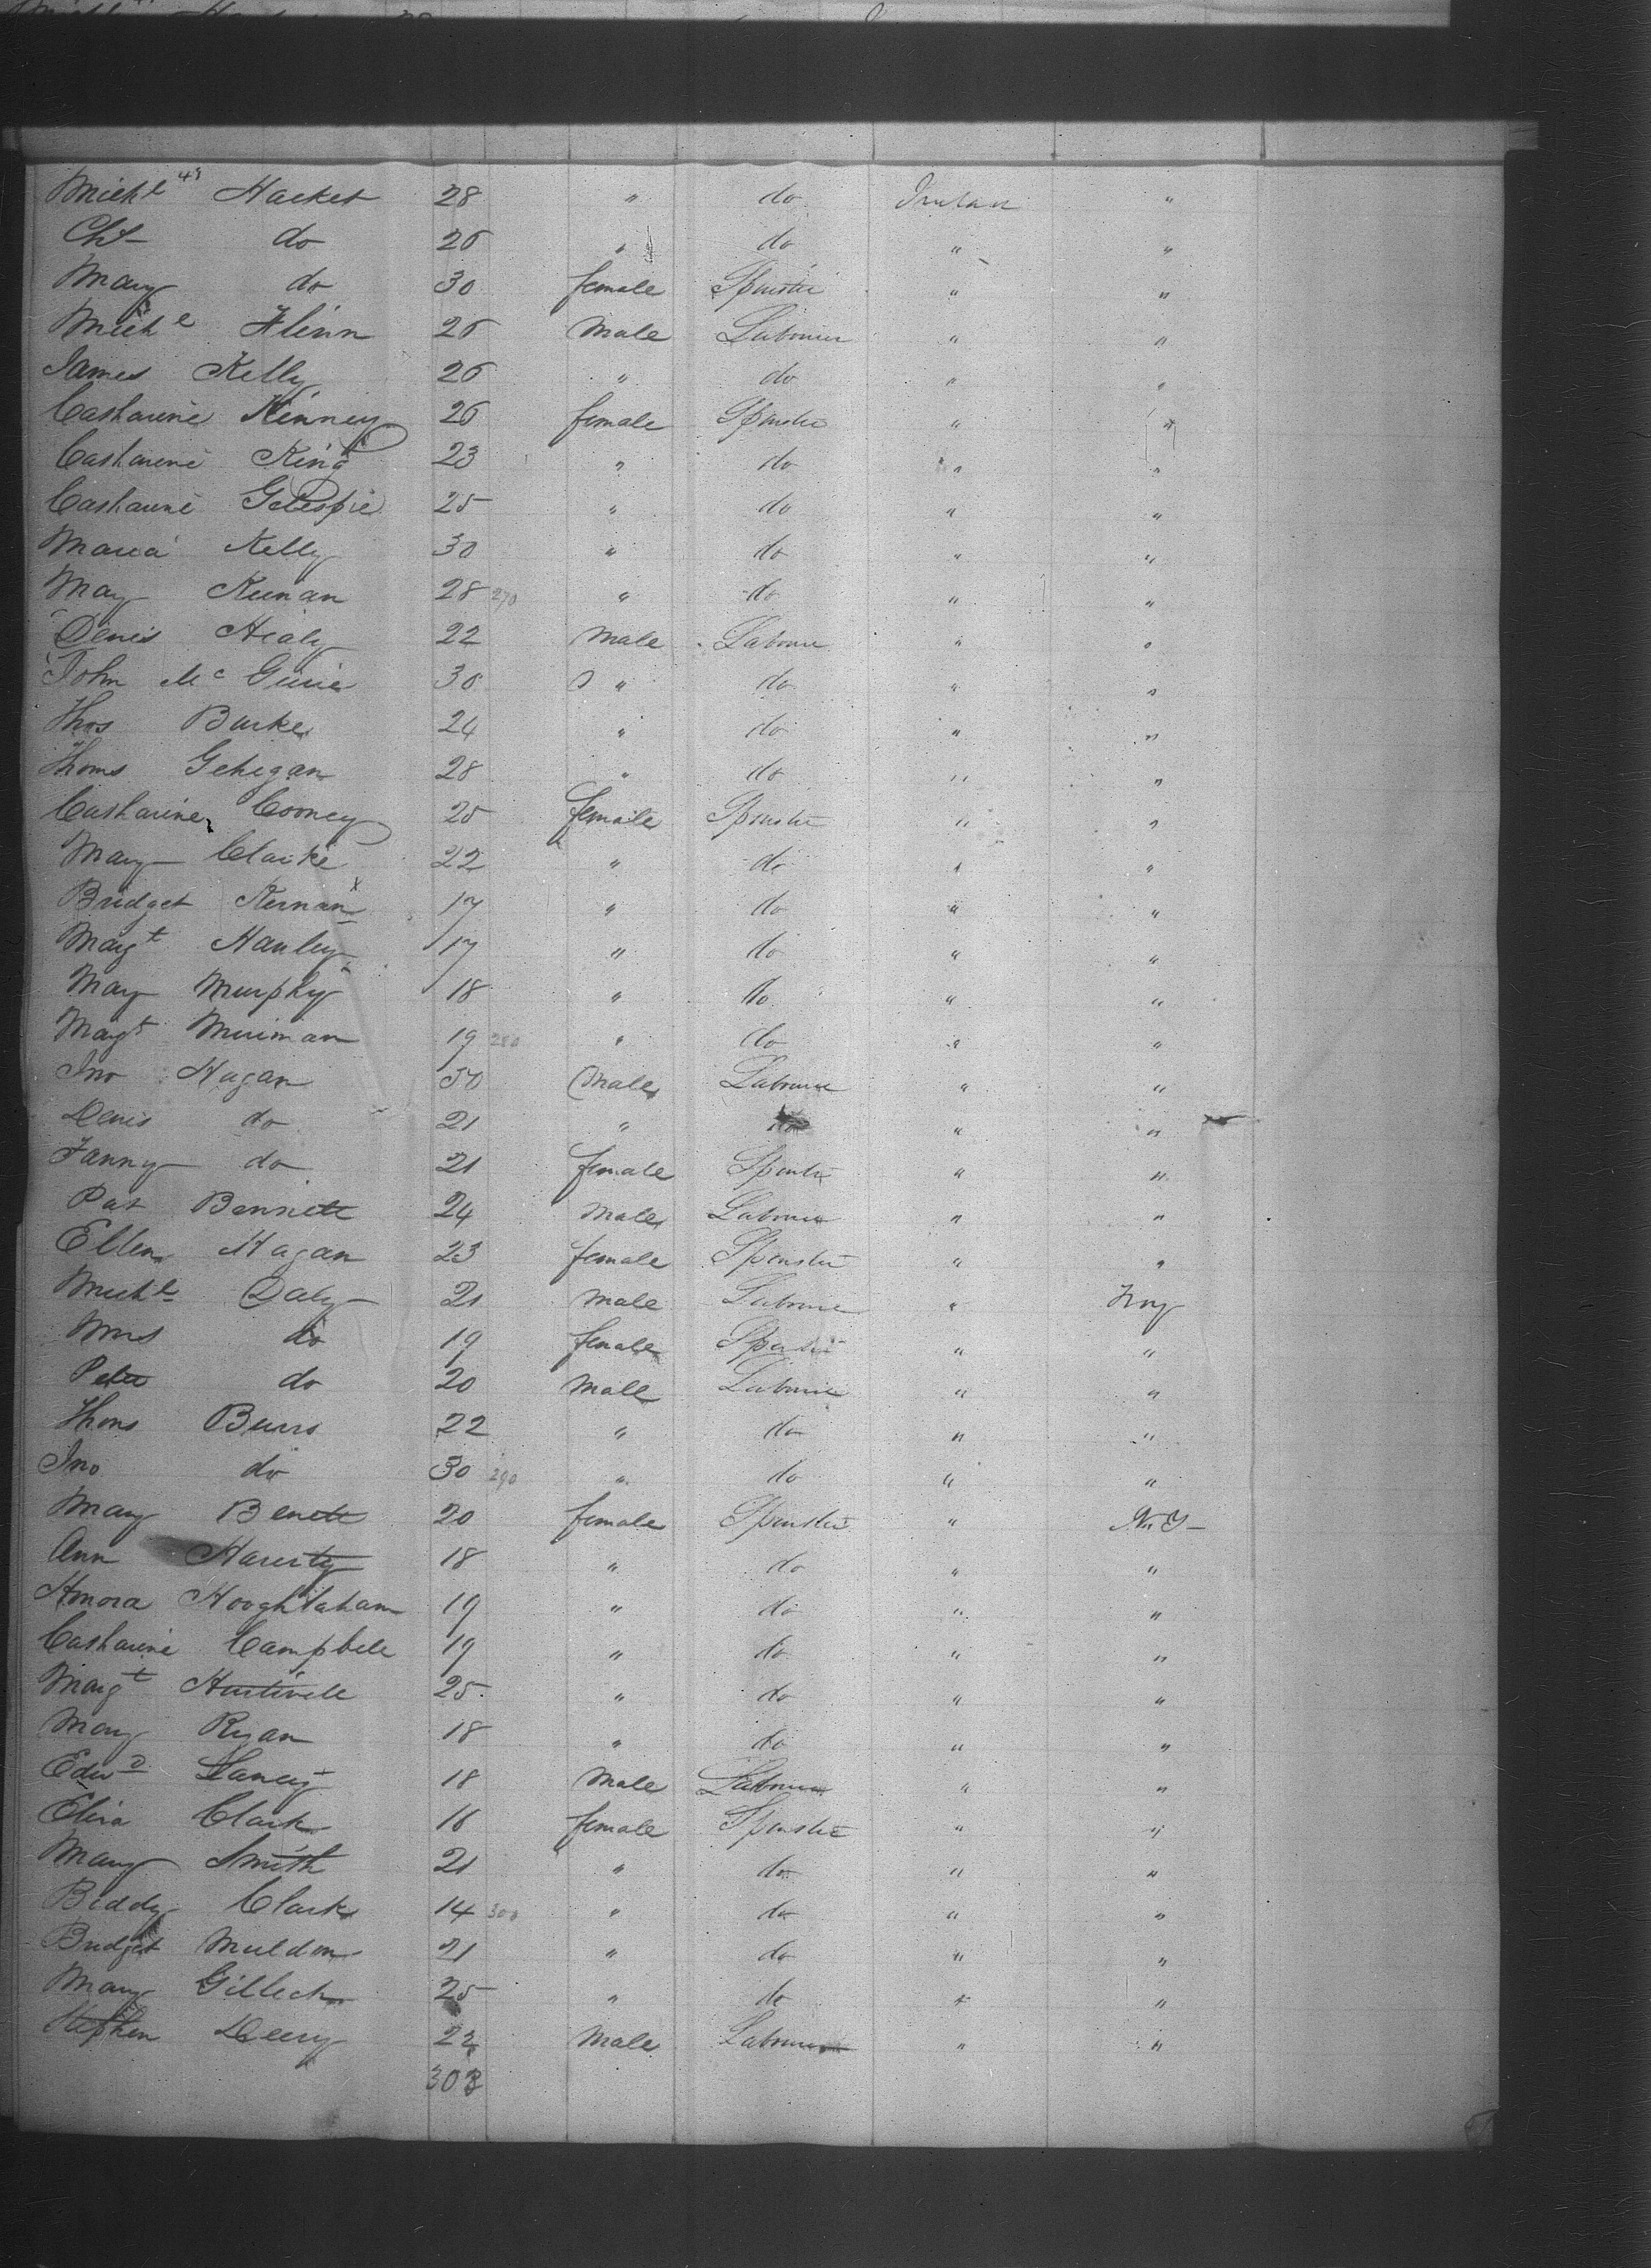 Michl 48 Hacket 28 " do Ireland "
Chs do 26 " do " "
Mary do 30 female Spinster " "
Michl Flinn 26 Male Labourer " "
James Kelly 26 " do " "
Catharine Kinney 26 female Spinster " "
Catharine King 23 " do " "
Catharine Gelespie 25 " do " "
Maria Kelly 30 " do " "
Mary Keenan 28 270 " do " "
Denis Healy 22 Male Labourer " "
John McGuire 30 " do " "
Thos Burke 24 " do " "
Thoms Gehegan 28 " do " "
Catharine Cooney 25 female Spinster " "
Mary Clarke 22 " do " "
Bridget Kernan x 17 " do " "
Margt Hanley 17 " do " "
Mary Murphy 18 " do " "
Margt 19 280 " do " "
Jno Hagan 30 Male Labourer " "
Denis do 21 " do " "
Fanny do 21 female Spinster " "
Pat Bennett 24 Male Labourer " "
Ellen Hagan 23 female Spinster " "
Michl Daly 21 Male Labourer " Troy
Mrs do 19 female Spinster " "
Peter do 20 Male Labourer " "
Thoms Burns 22 " do " "
Jno do 30 290 " do " "
Mary Benett 20 female Spinster " N.Y
Ann Haverty 18 " do " "
Honora Hooghlahan 19 " do " "
Catharine Campbell 19 " do " "
Margt 25 " do " "
Mary Ryan 18 " do " "
Edwd 18 Male Labourer " "
Eliza Clark 16 female Spinster " "
Mary Smith 21 " do " "
Biddy Clark 14 300 " do " "
Bridget Muldon 21 " do " "
Mary Gilleck 25 " do " "
Stephen Deery 22 Male Labourer " "
303